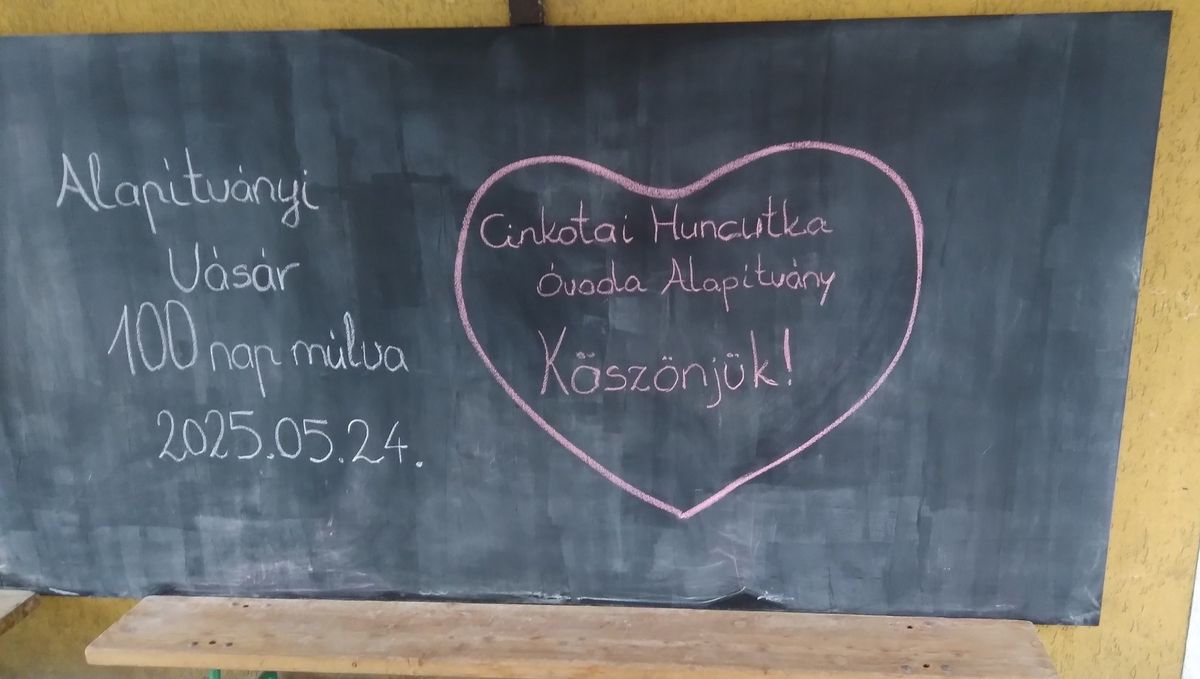 Alapítványi
Vásár
100 nap múlva
2025.05.24.
Cinkotai Huncutka
óvoda Alapítvány
Köszönjük!